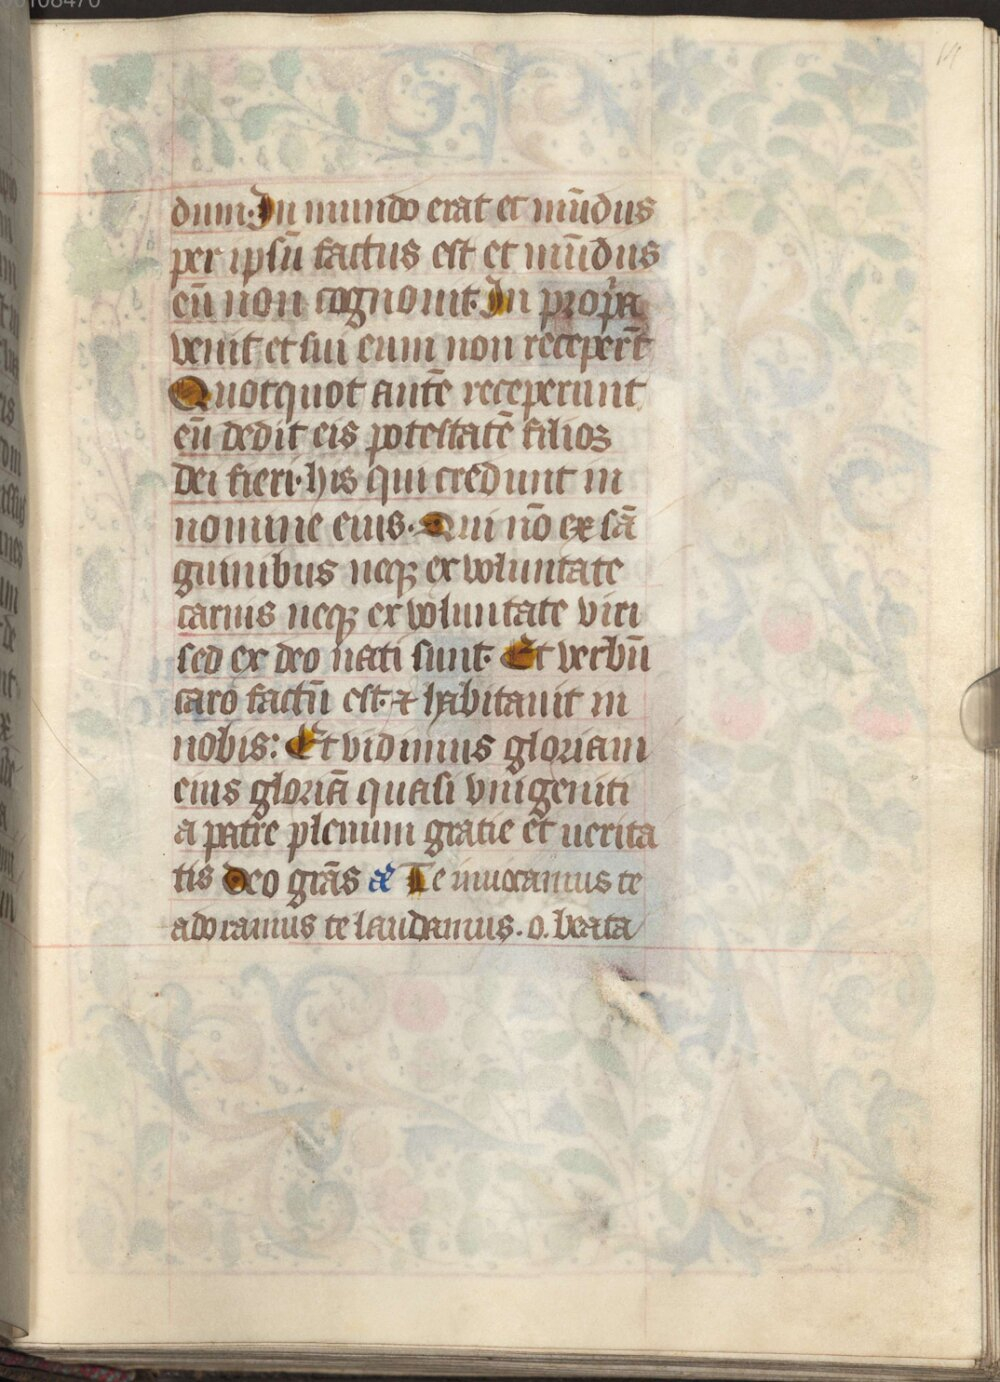 dum. In mundo erat et mūdus
per ipsū factus est et mūdus
eū non cognouit. In propͥa
venit et sui eum non receper̄t
Quotquot autē receperunt
eū dedit eis potestatē filios
dei fieri. his qui credunt in
nomine eius. Qui nō ex sā
guinibus neqꝫ ex voluntate
carnis neqꝫ ex voluntate viri
sed ex deo nati sunt. Et verbū
caro factū est. ⁊ habitauit in
nobis: Et vidimus gloriam
eius gloriā quasi vnigeniti
a patre plenum gratie et uerita
tis Deo grās Te inuocamus te
adoramus te laudamus. o. beata